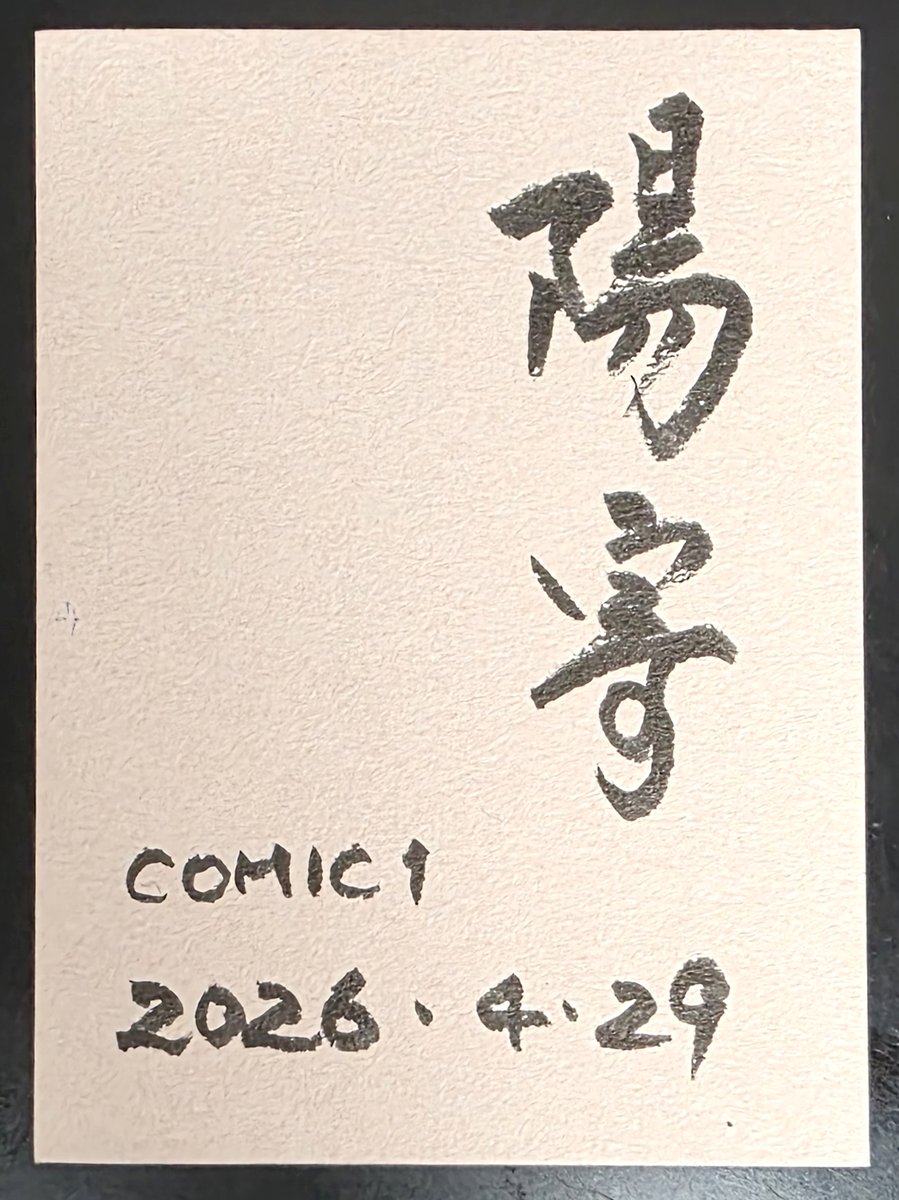 陽寄
COMIC1
2026.4.29